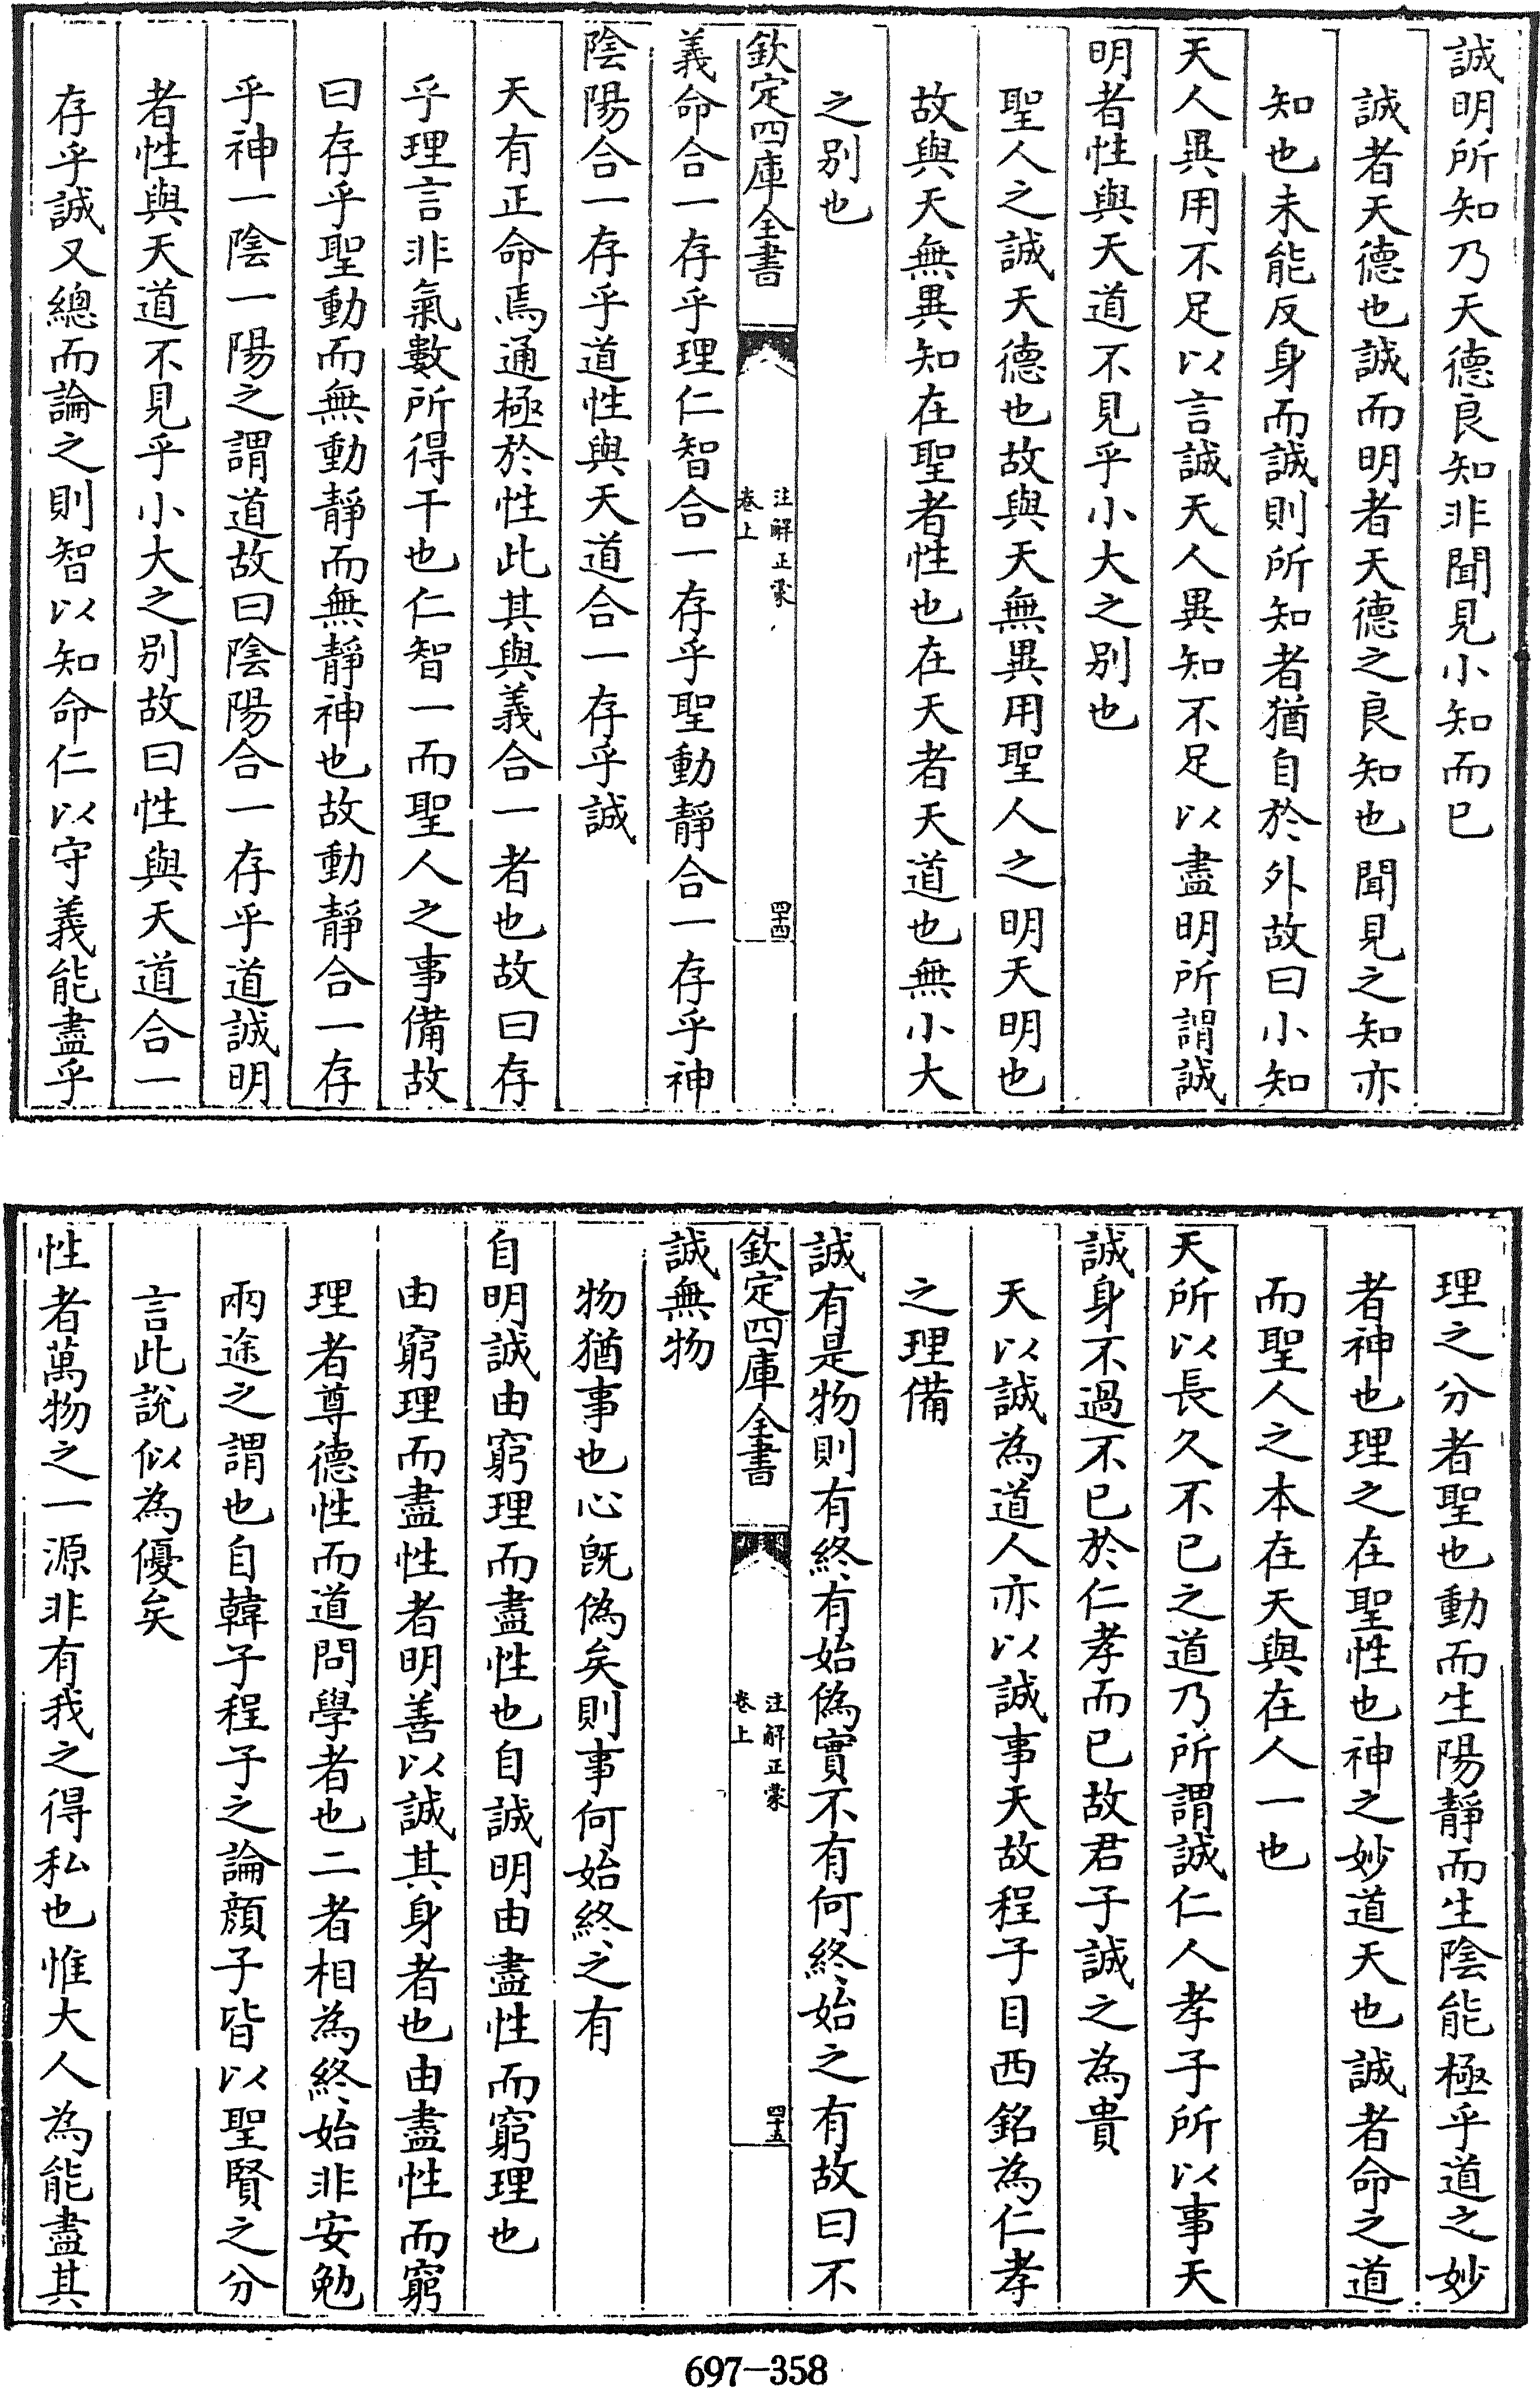 誠明所知乃天德良知非聞見小知而已
誠者天德也誠而明者天德之良知也聞見之知亦
知也未能反身而誠則所知者猶自於外故曰小知
天人異用不足以言誠天人異知不足以盡明所謂誠
明者性與天道不見乎小大之别也
聖人之誠天德也故與天無異用聖人之明天明也
故與天無異知在聖者性也在天者天道也無小大
之别也
欽定四庫全書
注解正蒙
卷上
四十四
義命合一存乎理仁智合一存乎聖動靜合一存乎神
陰陽合一存乎道性與天道合一存乎誠
天有正命焉通極於性此其與義合一者也故曰存
乎理言非氣數所得干也仁智一而聖人之事備故
曰存乎聖動而無動靜而無靜神也故動靜合一存
乎神一陰一陽之謂道故曰陰陽合一存乎道誠明
者性與天道不見乎小大之别故曰性與天道合一
存乎誠又總而論之則智以知命仁以守義能盡乎
理之分者聖也動而生陽靜而生陰能極乎道之妙
者神也理之在聖性也神之妙道天也誠者命之道
而聖人之本在天與在人一也
天所以長久不已之道乃所謂誠仁人孝子所以事天
誠身不過不已於仁孝而已故君子誠之為貴
天以誠為道人亦以誠事天故程子目西銘為仁孝
之理備
誠有是物則有終有始偽實不有何終始之有故曰不
欽定四庫全書
注解正蒙
卷上
四十五
誠無物
物猶事也心旣偽矣則事何始終之有
自明誠由窮理而盡性也自誠明由盡性而窮理也
由窮理而盡性者明善以誠其身者也由盡性而窮
理者尊德性而道問學者也二者相為終始非安勉
兩途之謂也自韓子程子之論顏子皆以聖賢之分
言此說似為優矣
性者萬物之一源非有我之得私也惟大人為能盡其
697-358